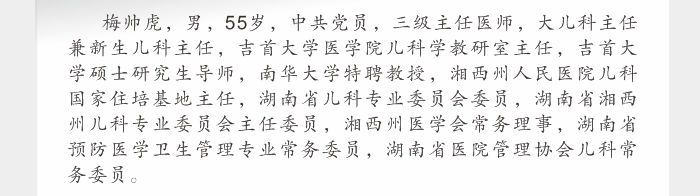 梅帅虎，男，55岁，中共党员，三级主任医师，大儿科主任
兼新生儿科主任，吉首大学医学院儿科学教研室主任，吉首大
学硕士研究生导师，南华大学特聘教授，湘西州人民医院儿科
国家住培基地主任，湖南省儿科专业委员会委员，湖南省湘西
州儿科专业委员会主任委员，湘西州医学会常务理事，湖南省
预防医学卫生管理专业常务委员，湖南省医院管理协会儿科常
务委员。